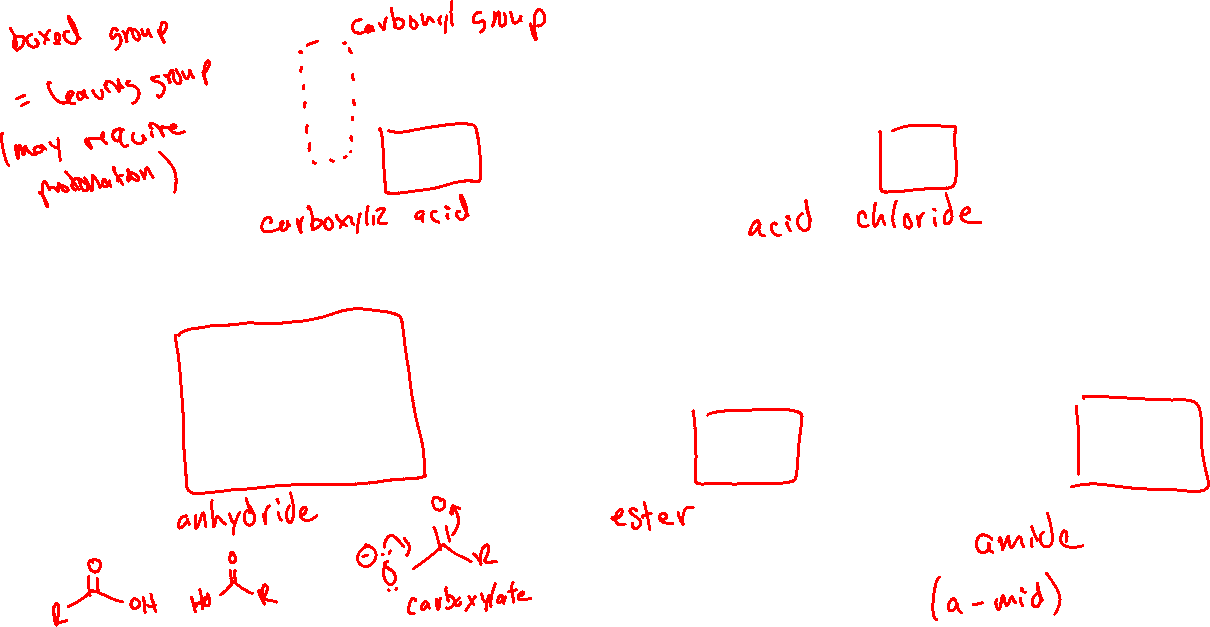 boxed group
= leaving group
(may require
protonation)
carbonyl group
carboxylic acid
acid chloride
anhydride
ester
amide
(a-mid)
O
R
OH
O
HO
R
O
⊖
O
R
carboxylate